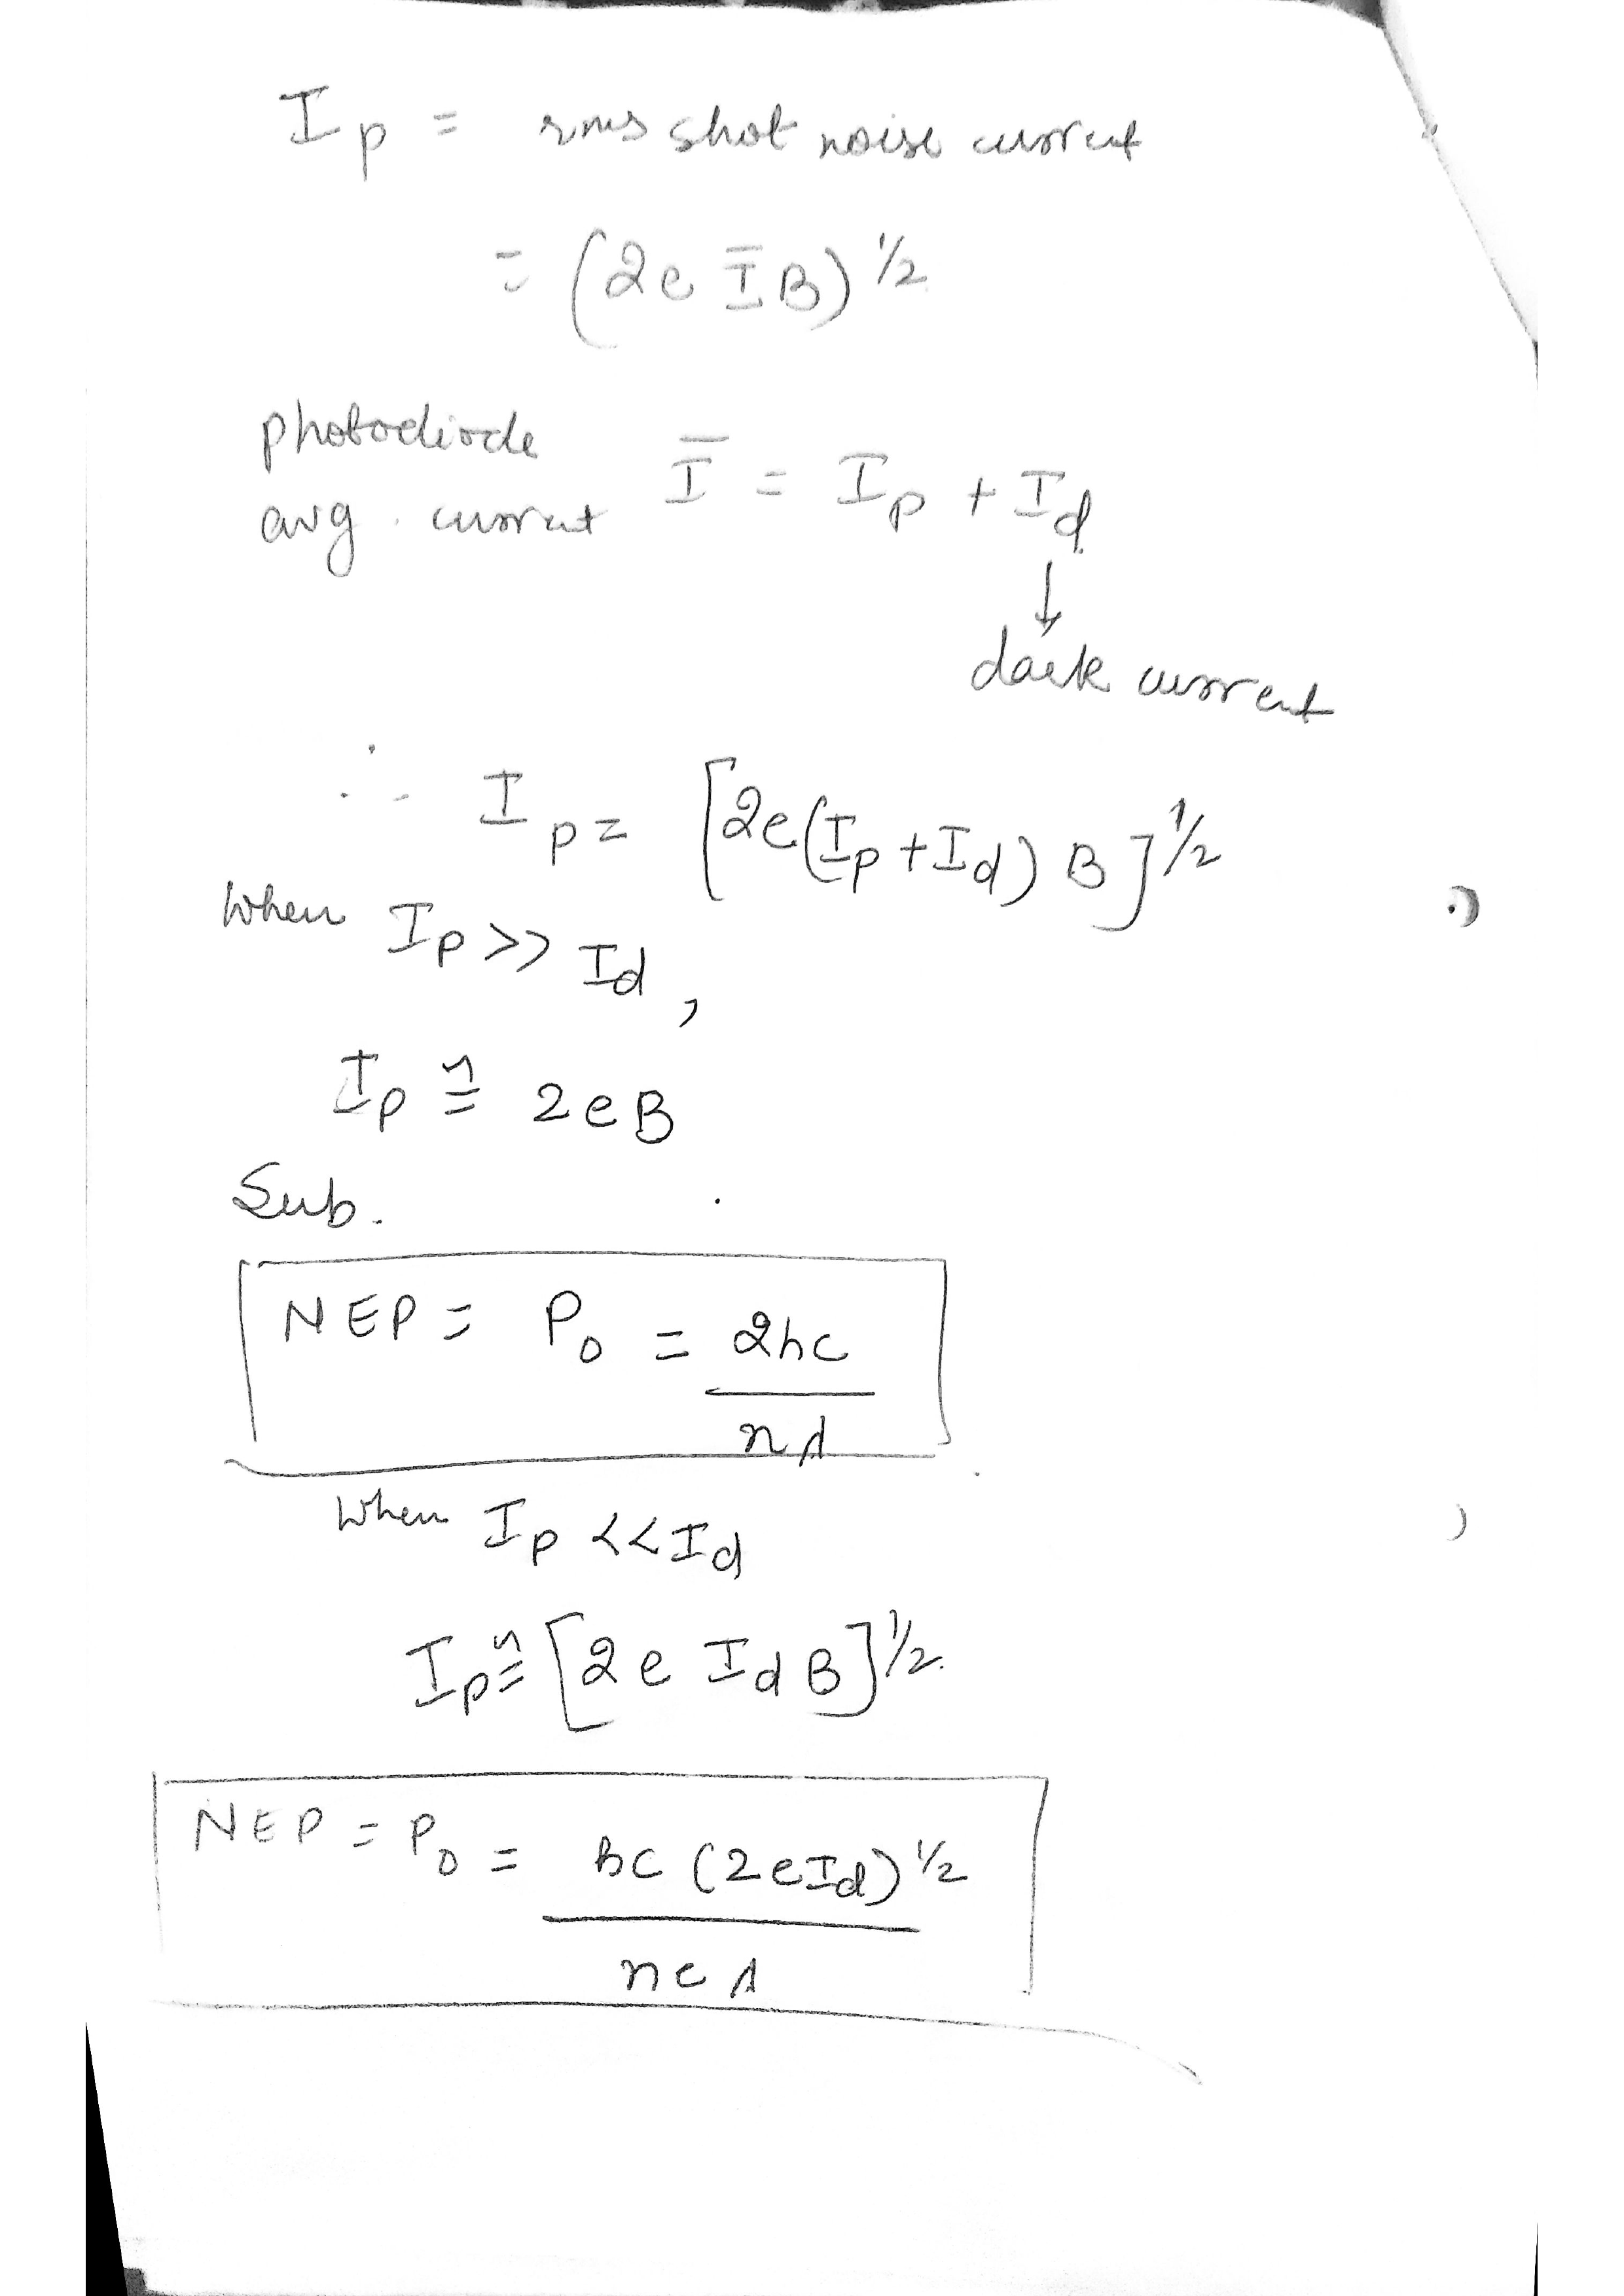 I p = rms shot noise current
= (2e Ī B)^1/2
photodiode
avg. current Ī = Ip + Id
↓
dark current
∴ Ip = [2e(Ip + Id) B]^1/2
When Ip >> Id,
Ip ≅ 2eB
Sub.
NEP = Po = 2hc
nλ
When Ip << Id
Ip ≅ [2e Id B]^1/2
NEP = Po = hc (2eId)^1/2
neλ